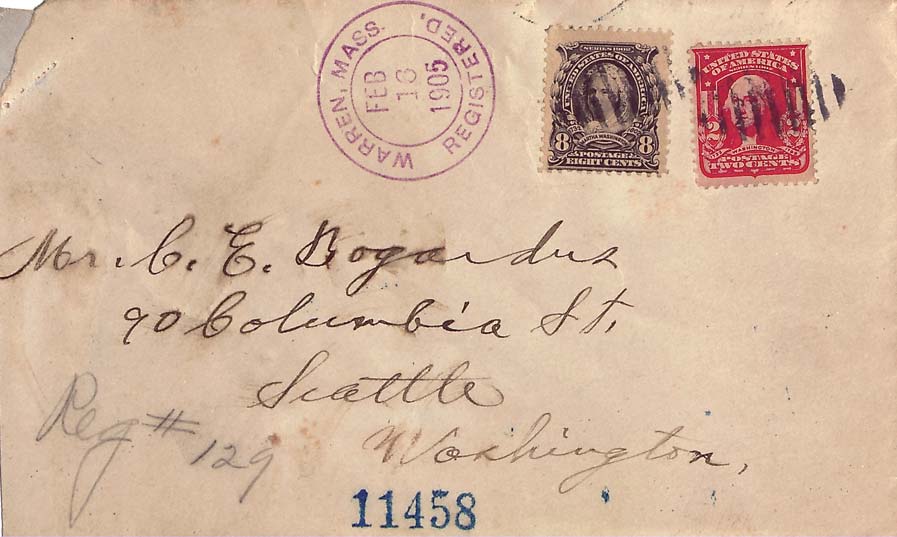 WARREN, MASS.
REGISTERED,
FEB
16
1905
SERIES 1902
UNITED STATES OF AMERICA
MARTHA WASHINGTON
8 8
POSTAGE
EIGHT CENTS
UNITED STATES
OF AMERICA
SERIES 1902
2
WASHINGTON
POSTAGE
TWO CENTS
Mr. C. E. Bogardus
90 Columbia St.
Seattle
Washington,
Reg #
129
11458